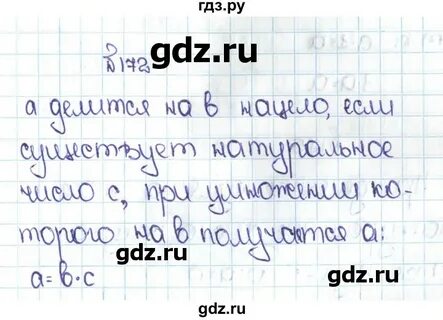 гдз.ру
gdz.ru
№172
а делится на в нацело, если
существует натуральное
число с, при умножении ко-
торого на в получается а:
а=в·с
gdz.ru
гдз.ру